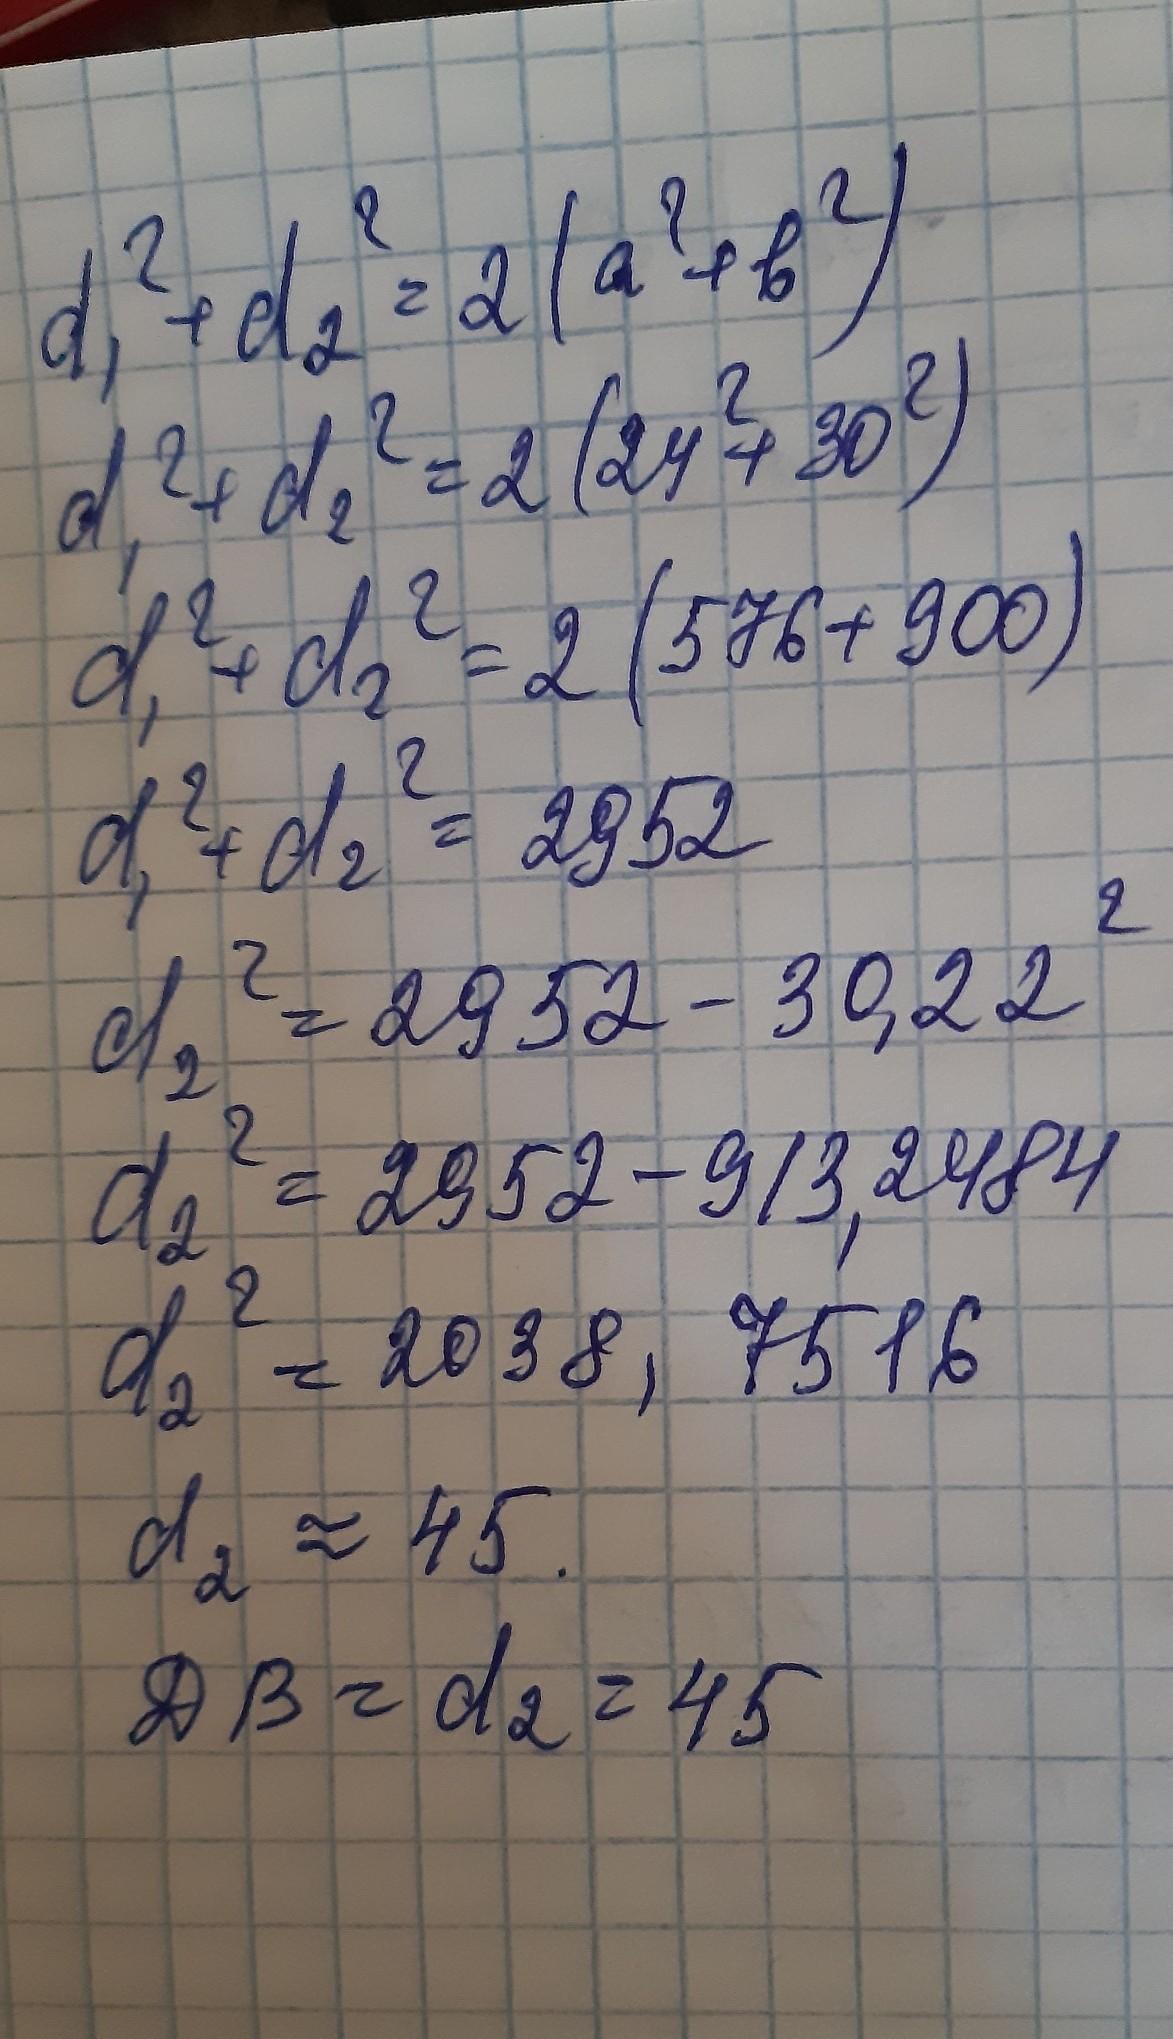 d₁² + d₂² = 2(a² + b²)
d₁² + d₂² = 2(24² + 30²)
d₁² + d₂² = 2(576 + 900)
d₁² + d₂² = 2952
d₂² = 2952 - 30,22²
d₂² = 2952 - 913,2484
d₂² = 2038,7516
d₂ ≈ 45.
ДВ = d₂ = 45